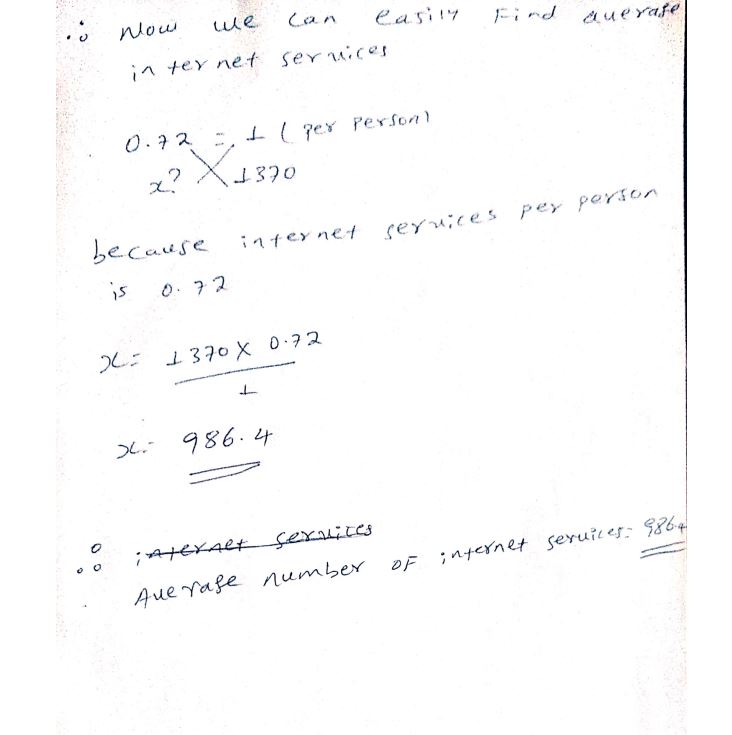 ∴ Now we can easily Find average
internet services
0.72 = 1 ( per Person)
x? 1370
because internet services per person
is 0.72
x = 1370 X 0.72
1
x = 986.4
∴ internet services
Average number OF internet services = 986.4